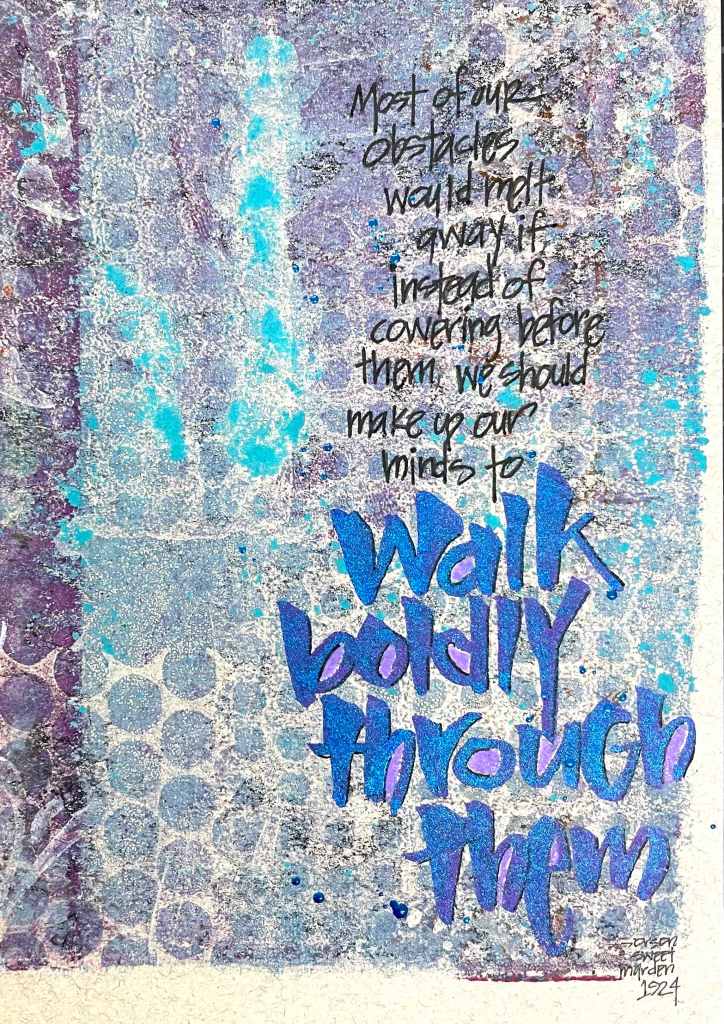 Most of our
obstacles
would melt
away if,
instead of
cowering before
them, we should
make up our
minds to
walk
boldly
through
them
orson
sweet
marden
1924